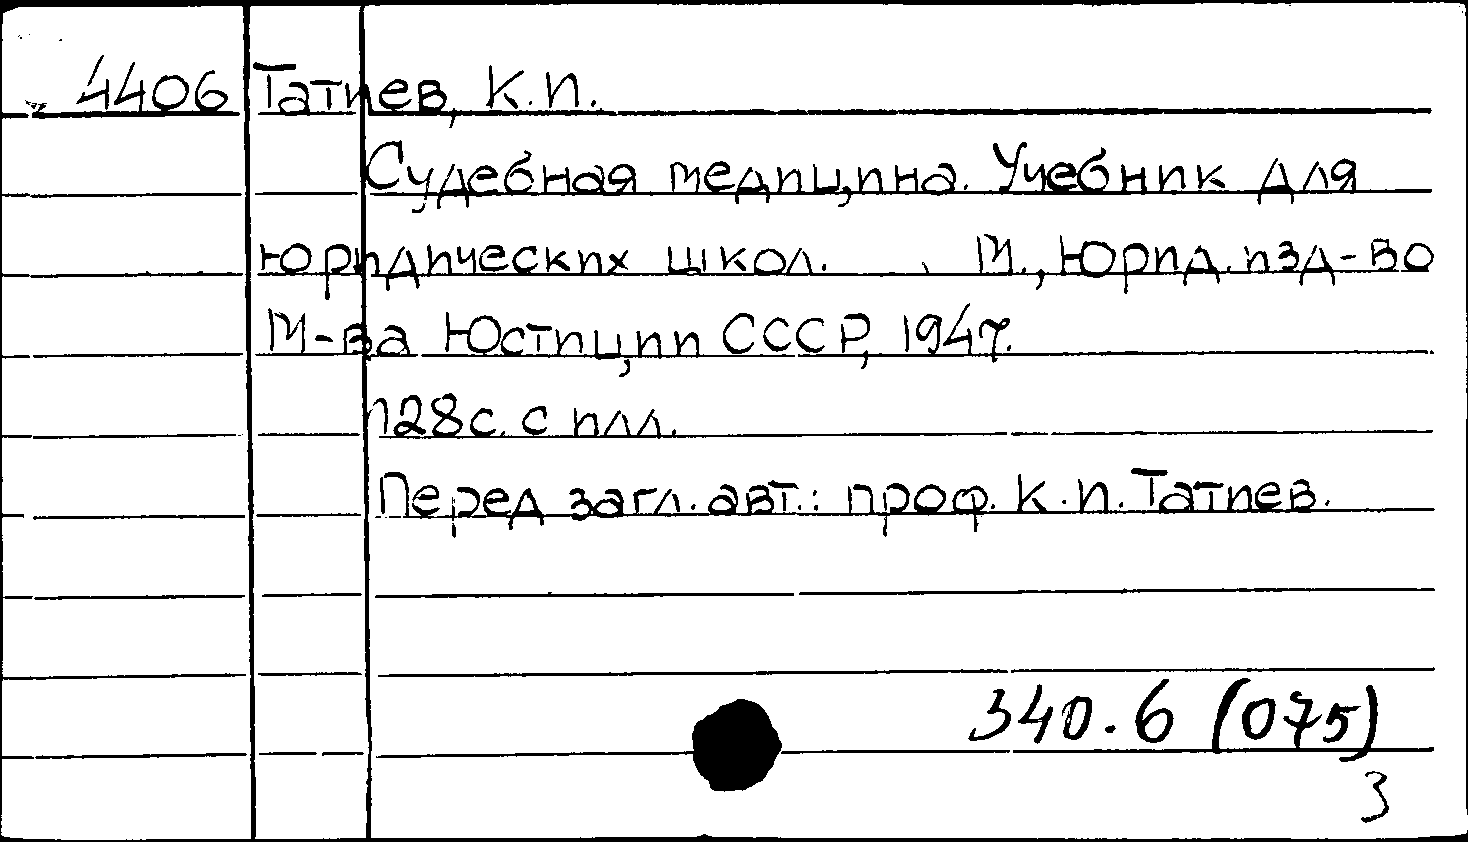 4406 Татиев, К.И.
Судебная медицина. Учебник для
юридических школ. М., Юрид. изд-во
М-ва Юстиции СССР, 1947.
128с. с илл.
Перед загл. авт.: проф. К.И. Татиев.
340.6 (075)
3